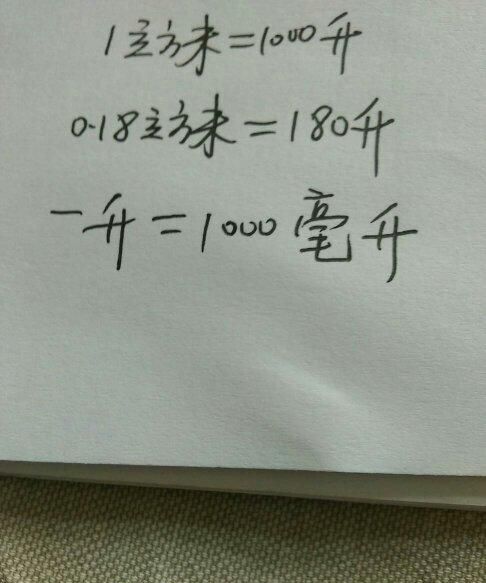 1立方米=1000升
0.18立方米=180升
一升=1000毫升